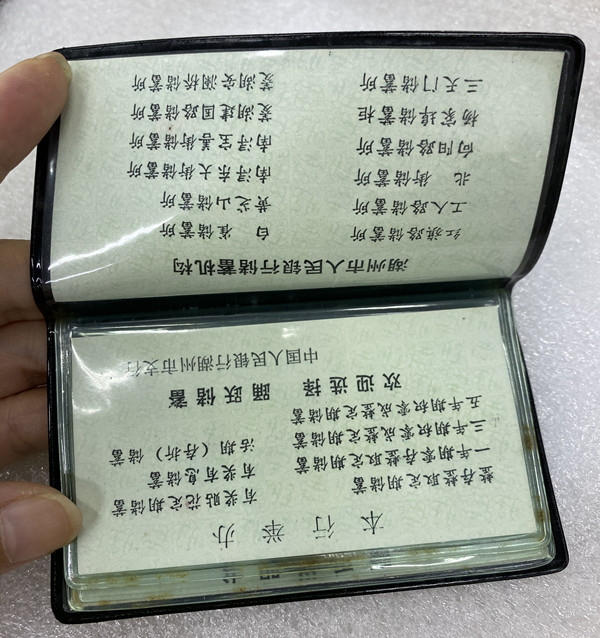 本 行 举 办
整存整取定期储蓄
一年期零存整取定期储蓄
三年期积零成整定期储蓄
五年期积零成整定期储蓄
有奖贴花定期储蓄
有奖有息储蓄
活期(存折)储蓄
欢迎选择 踊跃储蓄
中国人民银行湖州市支行
湖州市人民银行储蓄机构
红旗路储蓄所 白 雀储蓄所
工人路储蓄所 黄芝山储蓄所
北 街储蓄所 南浔东大街储蓄所
向阳路储蓄所 南浔宝善街储蓄所
杨家埠储蓄柜 菱湖建国路储蓄所
三天门储蓄所 菱湖安澜桥储蓄所